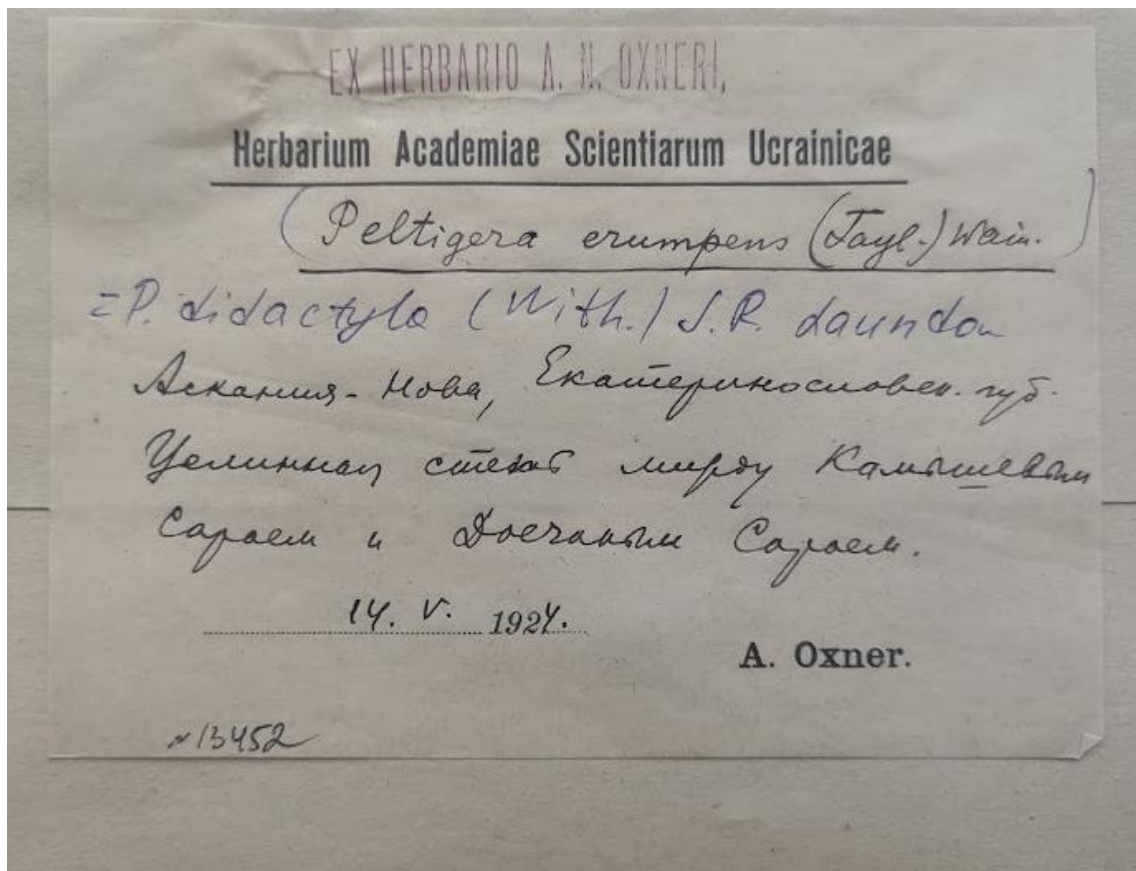 EX HERBARIO A. N. OXNERI,
Herbarium Academiae Scientiarum Ucrainicae
(Peltigera erumpens (Tayl.) Wain.)
=P. didactyla (With.) J.R. Laundon
Аскания-Нова, Екатеринославск. губ.
Целинная степь между Камышевым
Сараем и Досчаным Сараем.
14. V. 1924.
A. Oxner.
№13452